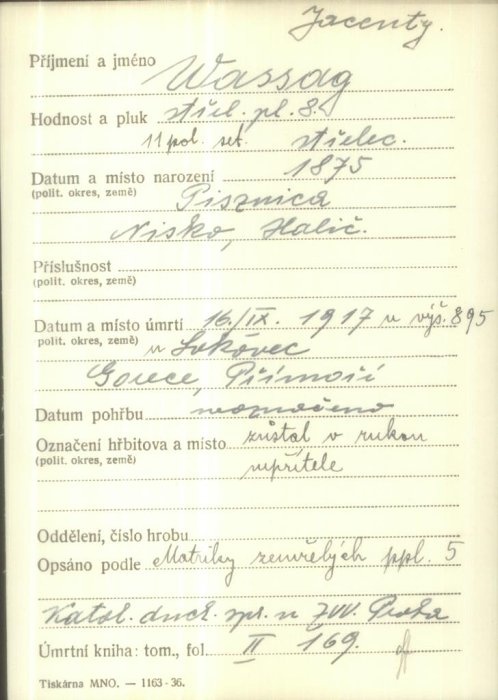 Jacenty.
Příjmení a jméno Wassag
Hodnost a pluk střel. pl. 8.
11 pol. set. střelec.
Datum a místo narození 1875
(polit. okres, země) Pisznica
Nisko, Halič.
Příslušnost
(polit. okres, země)
Datum a místo úmrtí 16./IX. 1917 u výš. 895
(polit. okres, země) u
Gorice, Přímoří
Datum pohřbu neoznačeno
Označení hřbitova a místo zůstal v rukou
(polit. okres, země) nepřítele
Oddělení, číslo hrobu
Opsáno podle Matriky zemřelých ppl. 5
Katol. duch. spr. u ZVV. Praha
Úmrtní kniha: tom., fol. II 169.
Tiskárna MNO. — 1163-36.